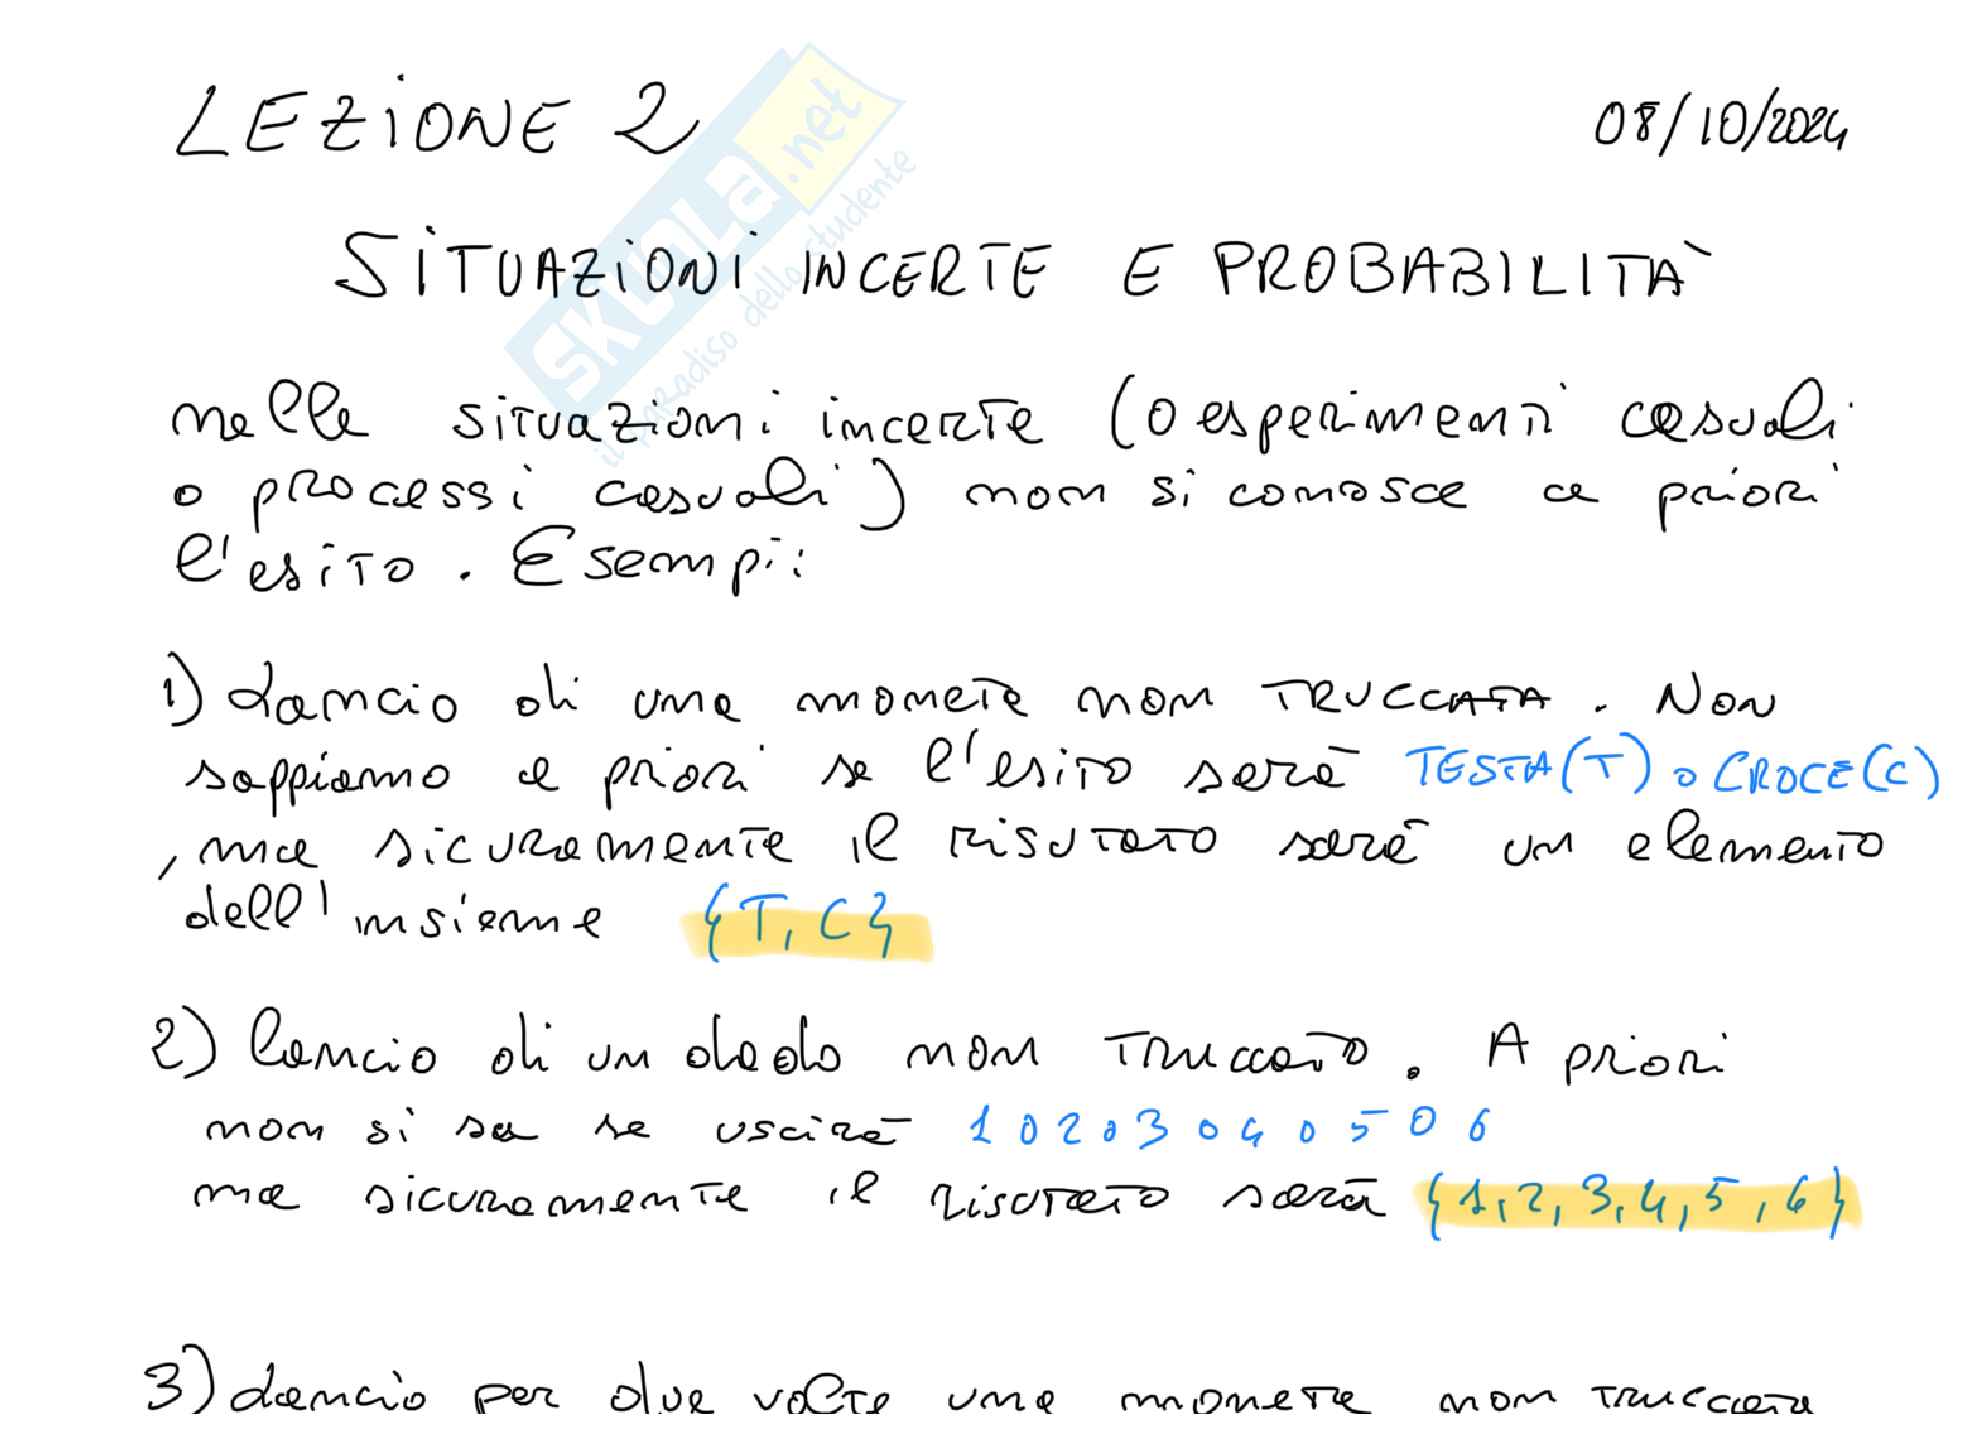 LEZIONE 2
08/10/2024
SKUOLA.net
il paradiso dello studente
SITUAZIONI INCERTE E PROBABILITÀ
nelle situazioni incerte (o esperimenti casuali
o processi casuali) non si conosce a priori
l'esito. Esempi:
1) Lancio di una moneta non TRUCCATA. Non
sappiamo a priori se l'esito sarà TESTA(T) o CROCE(C)
, ma sicuramente il risutato sarà un elemento
dell'insieme {T, C}
2) lancio di un dado non truccato. A priori
non si sa se uscirà 1 o 2 o 3 o 4 o 5 o 6
ma sicuramente il risutato sarà {1, 2, 3, 4, 5, 6}
3) Lancio per due volte una moneta non truccata